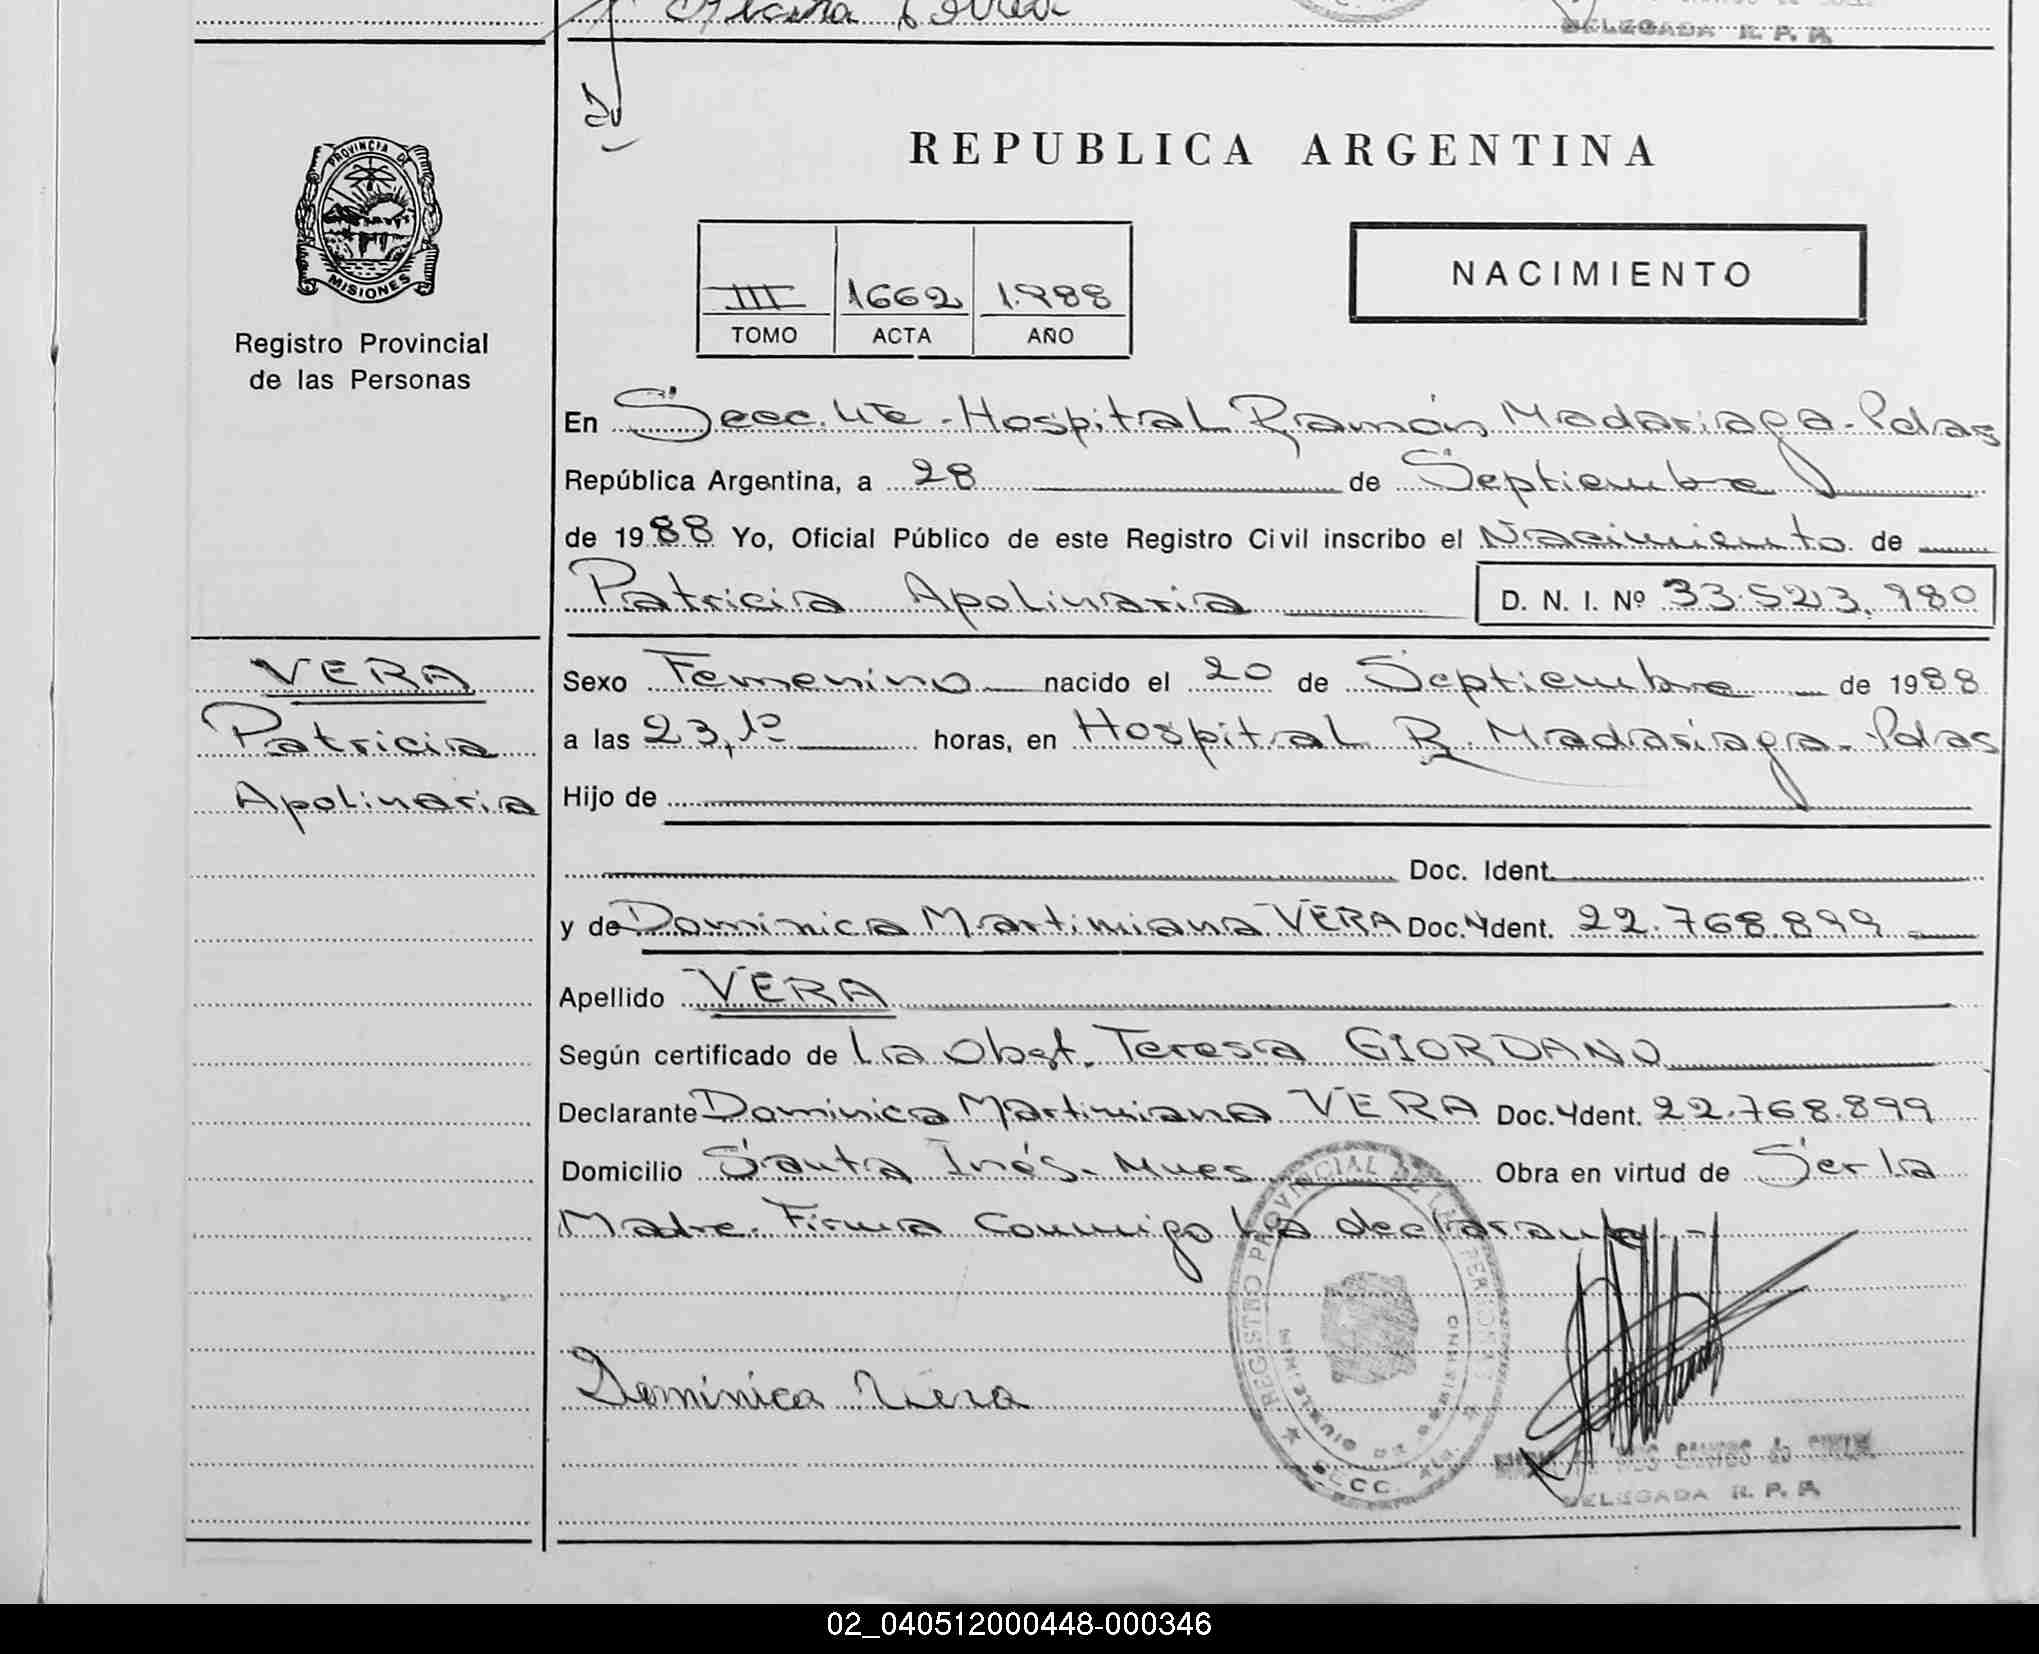 DELEGADA R. P. P.
PROVINCIA DE
MISIONES
Registro Provincial
de las Personas
REPUBLICA ARGENTINA
III 1662 1.988
TOMO ACTA AÑO
NACIMIENTO
En Secc. 4ta - Hospital Ramón Madariaga - Pdas
República Argentina, a 28 de Septiembre
de 1988 Yo, Oficial Público de este Registro Civil inscribo el Nacimiento de
Patricia Apolinaria D. N. I. Nº 33.523.980
VERA
Patricia
Apolinaria
Sexo Femenino nacido el 20 de Septiembre de 1988
a las 23,10 horas, en Hospital R. Madariaga - Pdas
Hijo de
Doc. Ident.
y de Dominica Martimiana VERA Doc. Ident. 22.768.899
Apellido VERA
Según certificado de la Obst. Teresa GIORDANO
Declarante Dominica Martimiana VERA Doc. Ident. 22.768.899
Domicilio Santa Inés - Mnes Obra en virtud de Ser la
Madre. Firma conmigo la declarante -
REGISTRO PROVINCIAL DE LAS PERSONAS
MINISTERIO DE GOBIERNO
Dominica Vera
DELEGADA R. P. P.
02_040512000448-000346